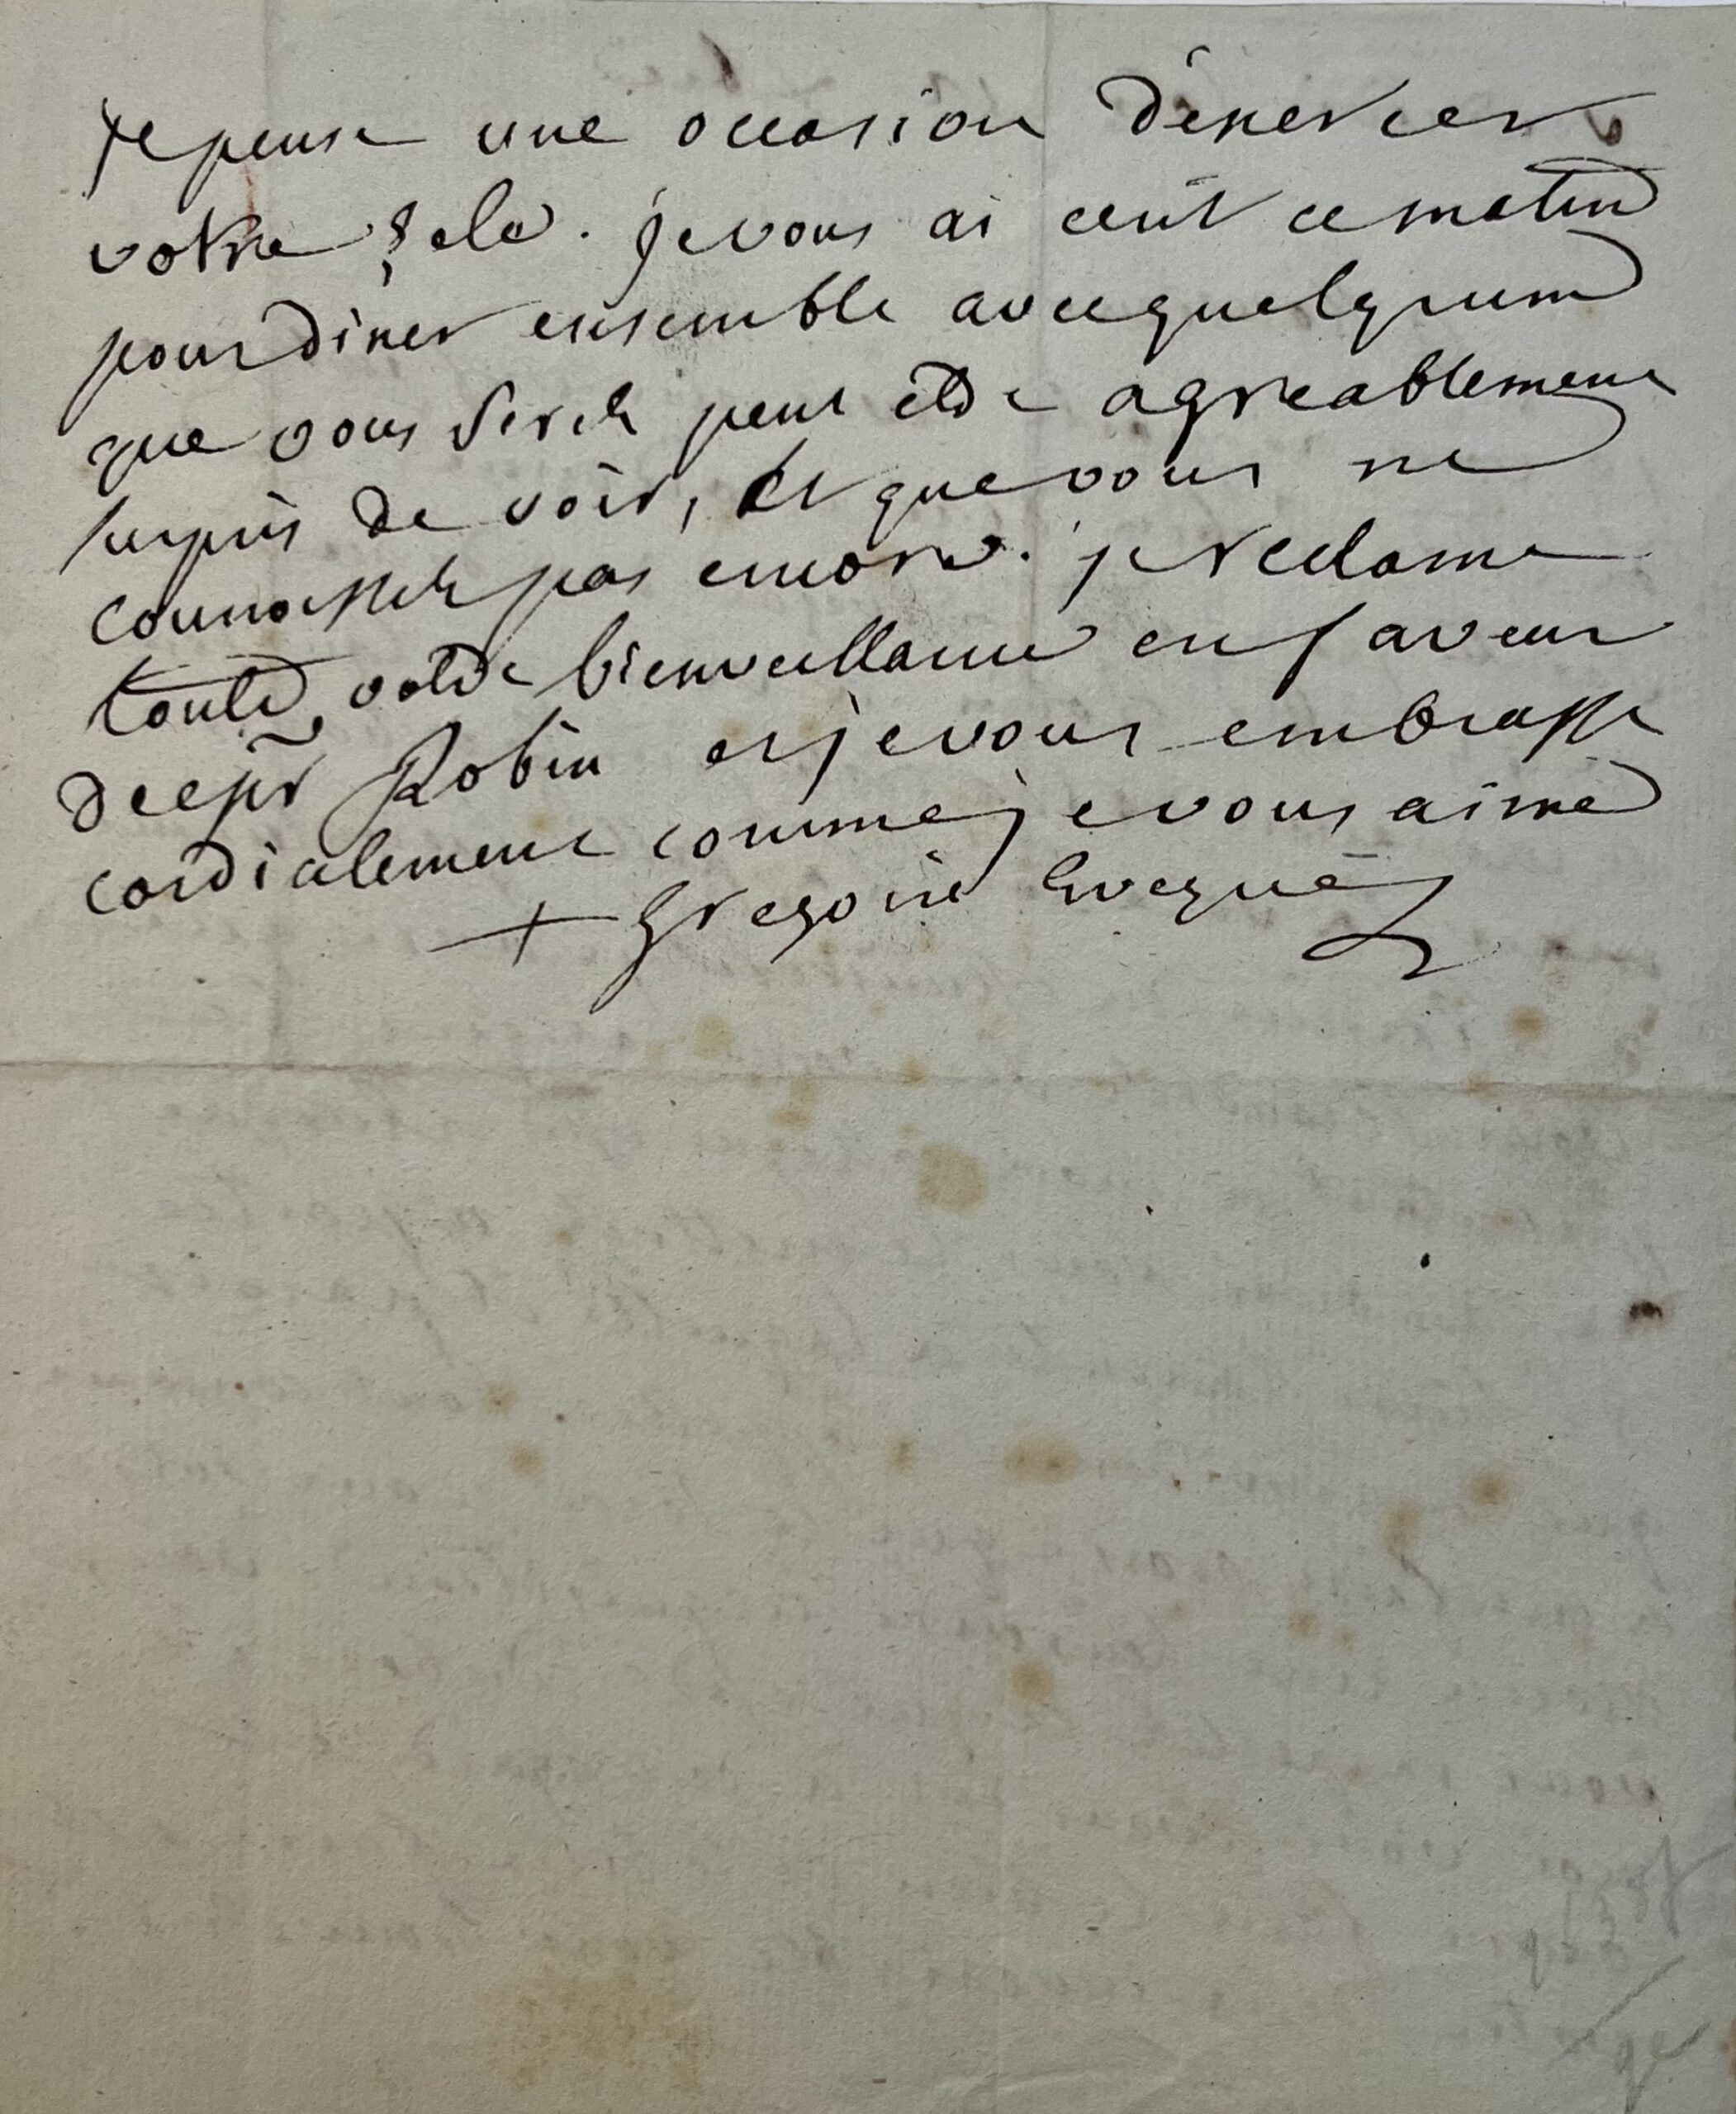 je pense une occasion d'exercer
votre zele. je vous ai ecrit ce matin
pour diner ensemble avec quelqu'un
que vous serez peut etre agreablement
surpris de voir, et que vous ne
connaissez pas encore. je reclame
toute votre bienveillance en faveur
de Robin et je vous embrasse
cordialement comme je vous aime
+ Gregoire Eveque